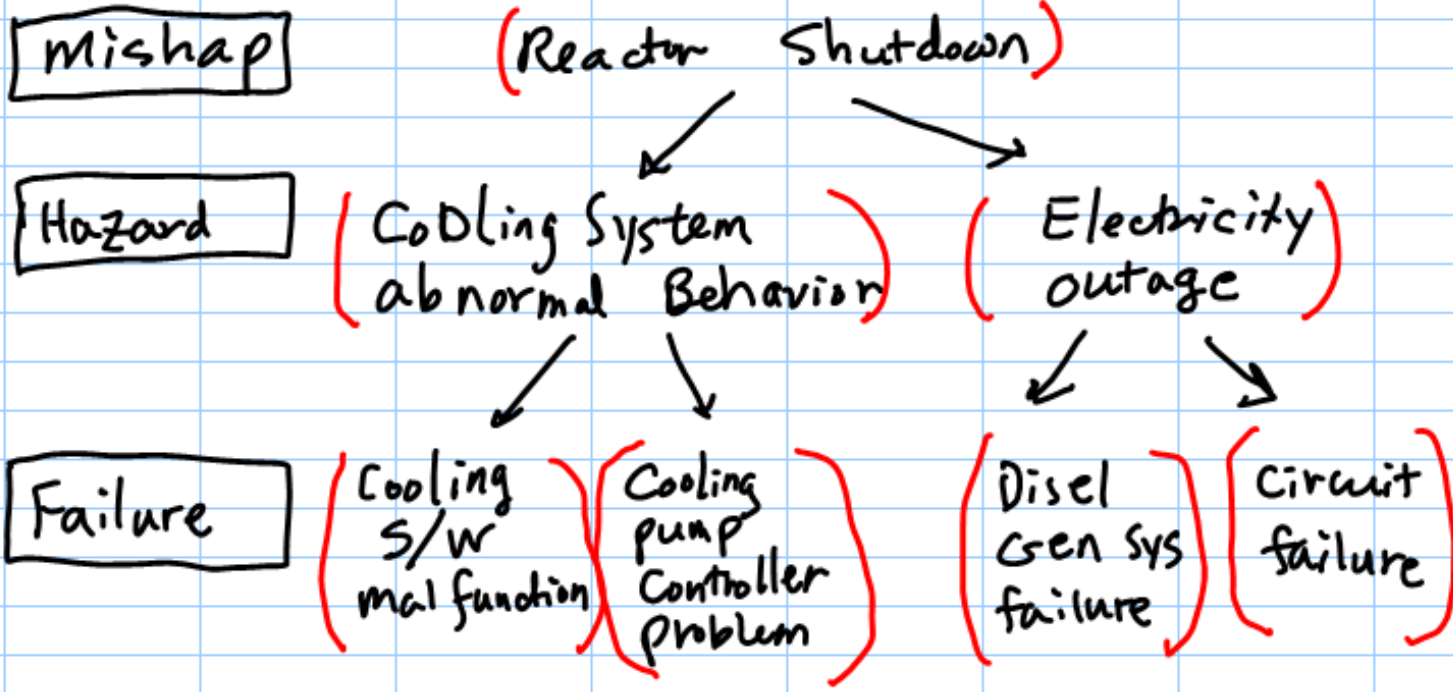 Mishap
Reactor Shutdown
Hazard
Cooling System
abnormal Behavior
Electricity
outage
Failure
Cooling
S/W
malfunction
Cooling
pump
Controller
problem
Disel
Gen Sys
failure
Circuit
failure